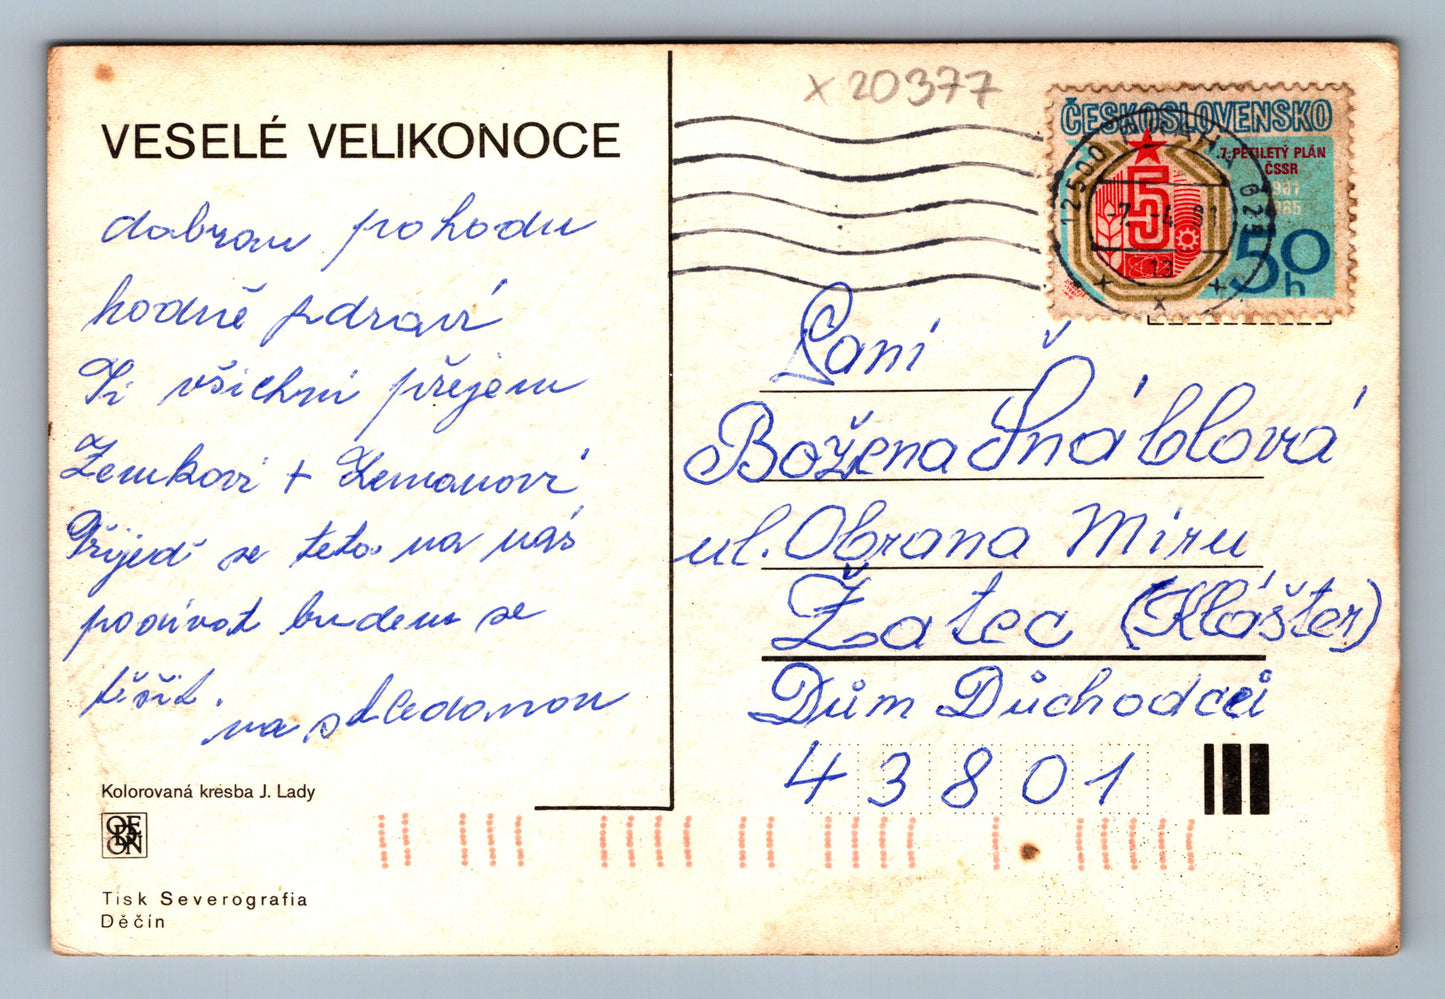 x 20377
VESELÉ VELIKONOCE
dobrou pohodu
hodně zdraví
Ti všichni přejem
Zemkovi + Zemanovi
Přijedť se teto na nás
podívat budem se
těšit.
na shledanou
Kolorovaná kresba J. Lady
Tisk Severografia
Děčín
ČESKOSLOVENSKO
7. PĚTILETÝ PLÁN
ČSSR
1981
1985
5
50
h
12500
-7.-4.81
13
62a
Paní
Božena Šnáblová
ul. Obrana Míru
Žatec (Klášter)
Dům Důchodců
43801